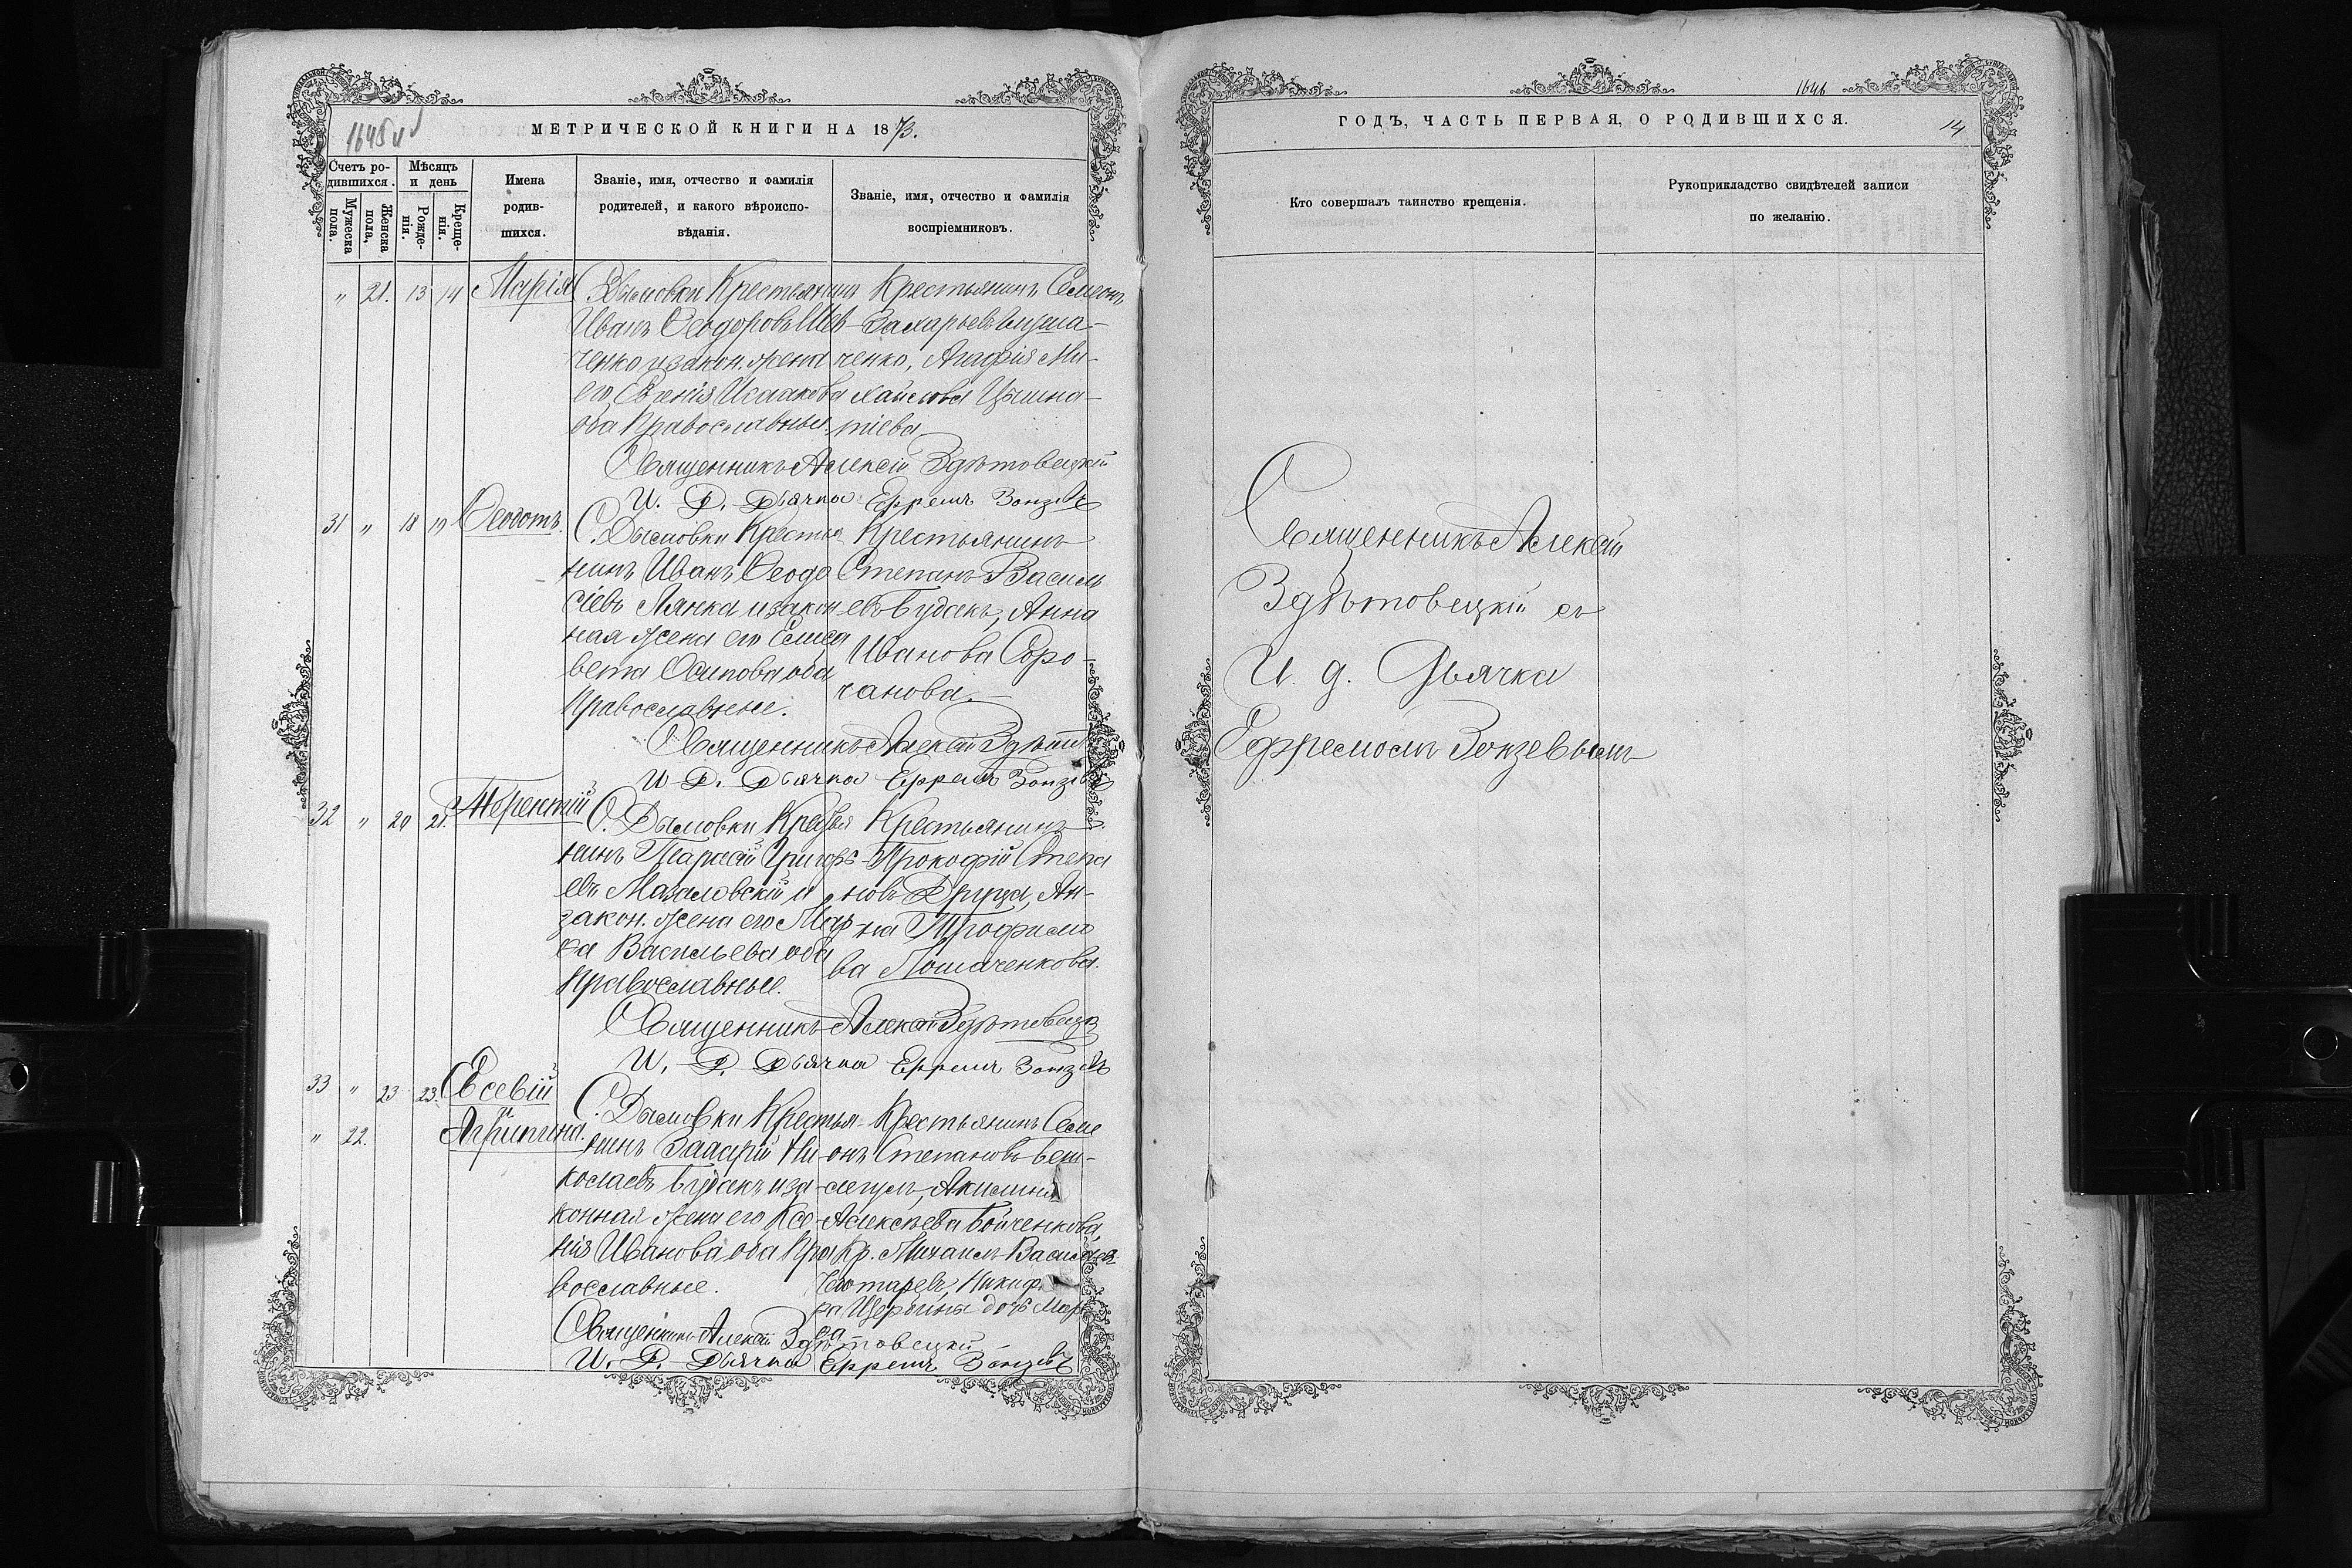 1645
МЕТРИЧЕСКОЙ КНИГИ НА 1873.
Счетъ ро-
дившихся.
Мужеска пола.
Женска пола,
Мѣсяцъ
и день
Рожде-
нія.
Креще-
нія.
Имена
родив-
шихся.
Званіе, имя, отчество и фамилія
родителей, и какого вѣроиспо-
вѣданія.
Званіе, имя, отчество и фамилія
воспріемниковъ.
" 21. 13 14 Марія
С. Дымовки Крестьянинъ
Иванъ Ѳеодоровъ Шев-
ченко и закон. жена
его, Евгенія Исаакова
оба Православные.
Крестьянинъ Семеонъ
Захарьевъ
ченко, Агафія Ми-
хайлова
Священникъ Алексій Здѣтовецкій
И. Д. Дьячка Ефремъ Зонзевъ
31 " 18 19 Ѳеодотъ.
С. Дымовки Крестья
нинъ Иванъ Ѳеодо
сіевъ Лянка и закон
ная жена его Елиса
вета Осипова оба
Православные.
Крестьянинъ
Степанъ Василь
евъ Будакъ, Анна
Иванова Соро-
чанова.
Священникъ Алексій Здѣтов
И. Д. Дьячка Ефремъ Зонзевъ
32 " 20 21. Терентій
С. Дымовки Крестья
нинъ Тарасій Григорь-
евъ Мазаловскій и
закон. жена его Мар
ѳа Васильева оба
Православные.
Крестьянинъ
Прокофій Степа
новъ Друца, Ан-
на Трофимо
ва Ломаченкова.
Священникъ Алексій Здѣтовецкій
И. Д. Дьячка Ефремъ Зонзевъ
33 " 23 23. Евсевій
" 22. и Агрипина.
С. Дымовки Крестья-
нинъ Захарій Ни-
колаевъ Будакъ и за-
конная жена его Ксе-
нія Иванова оба Пра
вославные.
Крестьянинъ Семе
онъ Степановъ Беш-
слегулъ, Акилина
Алексѣева Бойченкова,
Кр. Михаилъ Васильев
Чеботаревъ, Никиф
ра Щербины дочь Мар
ѳа
Священникъ Алексій Здѣтовецкій
И. Д. Дьячка Ефремъ Зонзевъ
1646
ГОДЪ, ЧАСТЬ ПЕРВАЯ, О РОДИВШИХСЯ.
14
Кто совершалъ таинство крещенія.
Рукоприкладство свидѣтелей записи
по желанію.
Священникъ Алексій
Здѣтовецкій съ
И. д. Дьячка
Ефремомъ Зонзевымъ